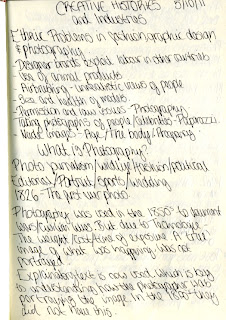 CREATIVE HISTORIES 5/10/11
and Industries
Ethnic Problems in fashion/graphic design
& photography
- Designer brands exploit labour in other countries
- Use of animal products
- Airbrushing - unrealistic views of people
- Size and health of models
- Permission and law issues - Photography
- Taking photographs of people/celebrates - Paparazzi
- Nude Images - Age / The body /
What is Photography?
Photo journalism/wildlife/fashion/political
Editorial/Portrait/Sports/wedding
1826 - The first ever photo.
Photography was used in the 1850s to document
wars/ But due to Technology -
The weight/cost/time of exposure the
image of what was happening was not
portrayed.
Explanation/text is now used which is key
to understanding how the photographer was
portraying the image. In the 1850s they
did not have this.